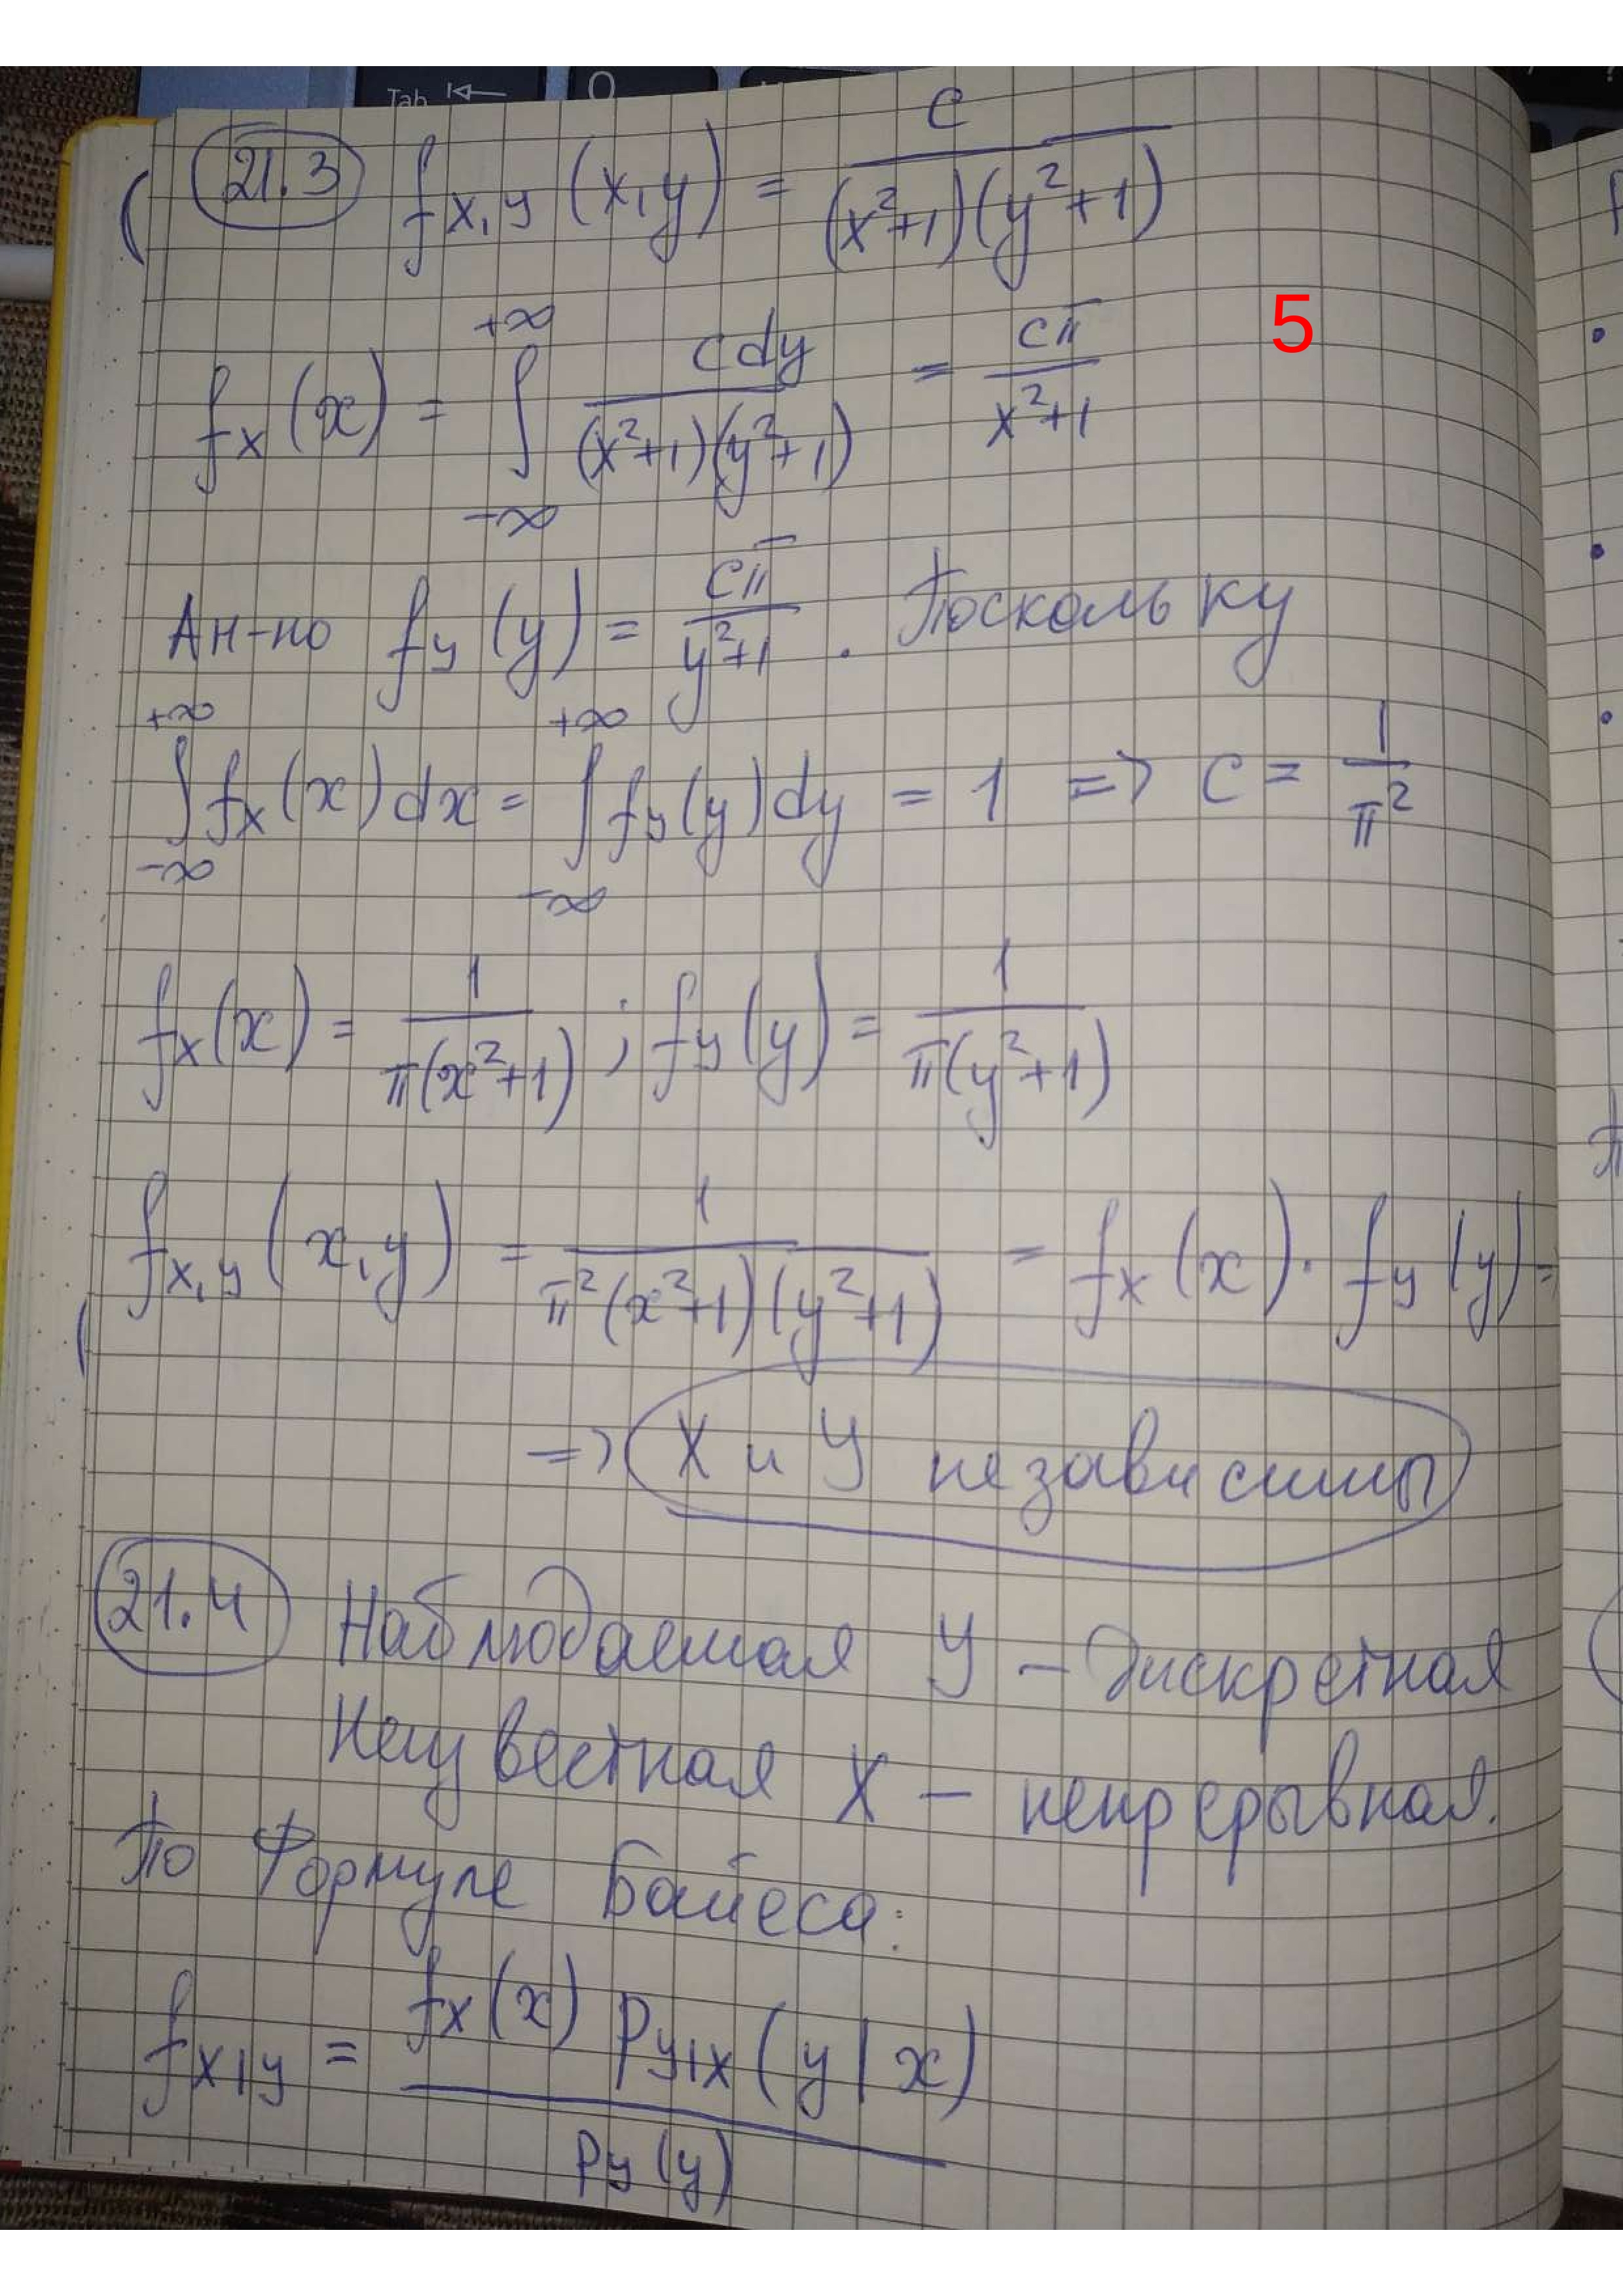 Tab
21.3 f_{X,Y}(x,y) = \frac{c}{(x^2+1)(y^2+1)}
5
f_X(x) = \int_{-\infty}^{+\infty} \frac{c dy}{(x^2+1)(y^2+1)} = \frac{c\pi}{x^2+1}
Ан-но f_Y(y) = \frac{c\pi}{y^2+1}. Поскольку
\int_{-\infty}^{+\infty} f_X(x)dx = \int_{-\infty}^{+\infty} f_Y(y)dy = 1 => c = \frac{1}{\pi^2}
f_X(x) = \frac{1}{\pi(x^2+1)}; f_Y(y) = \frac{1}{\pi(y^2+1)}
f_{X,Y}(x,y) = \frac{1}{\pi^2(x^2+1)(y^2+1)} = f_X(x) \cdot f_Y(y) =>
=> X и Y независимы
21.4 Наблюдаемая Y – дискретная
Неизвестная X – непрерывная.
По Формуле Байеса:
f_{X|Y} = \frac{f_X(x) P_{Y|X}(y|x)}{P_Y(y)}